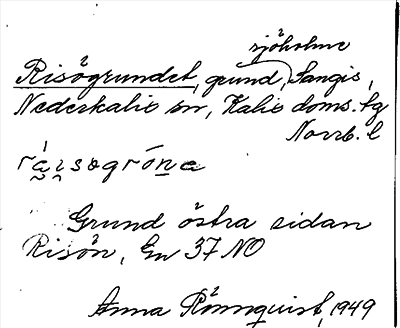 sjöholme
Risögrundet, grund, Sangis,
Nederkalix sn, Kalix doms. tg
Norrb. l
Grund östra sidan
Risön, Gn 37 NO
Anna Rönnquist, 1949